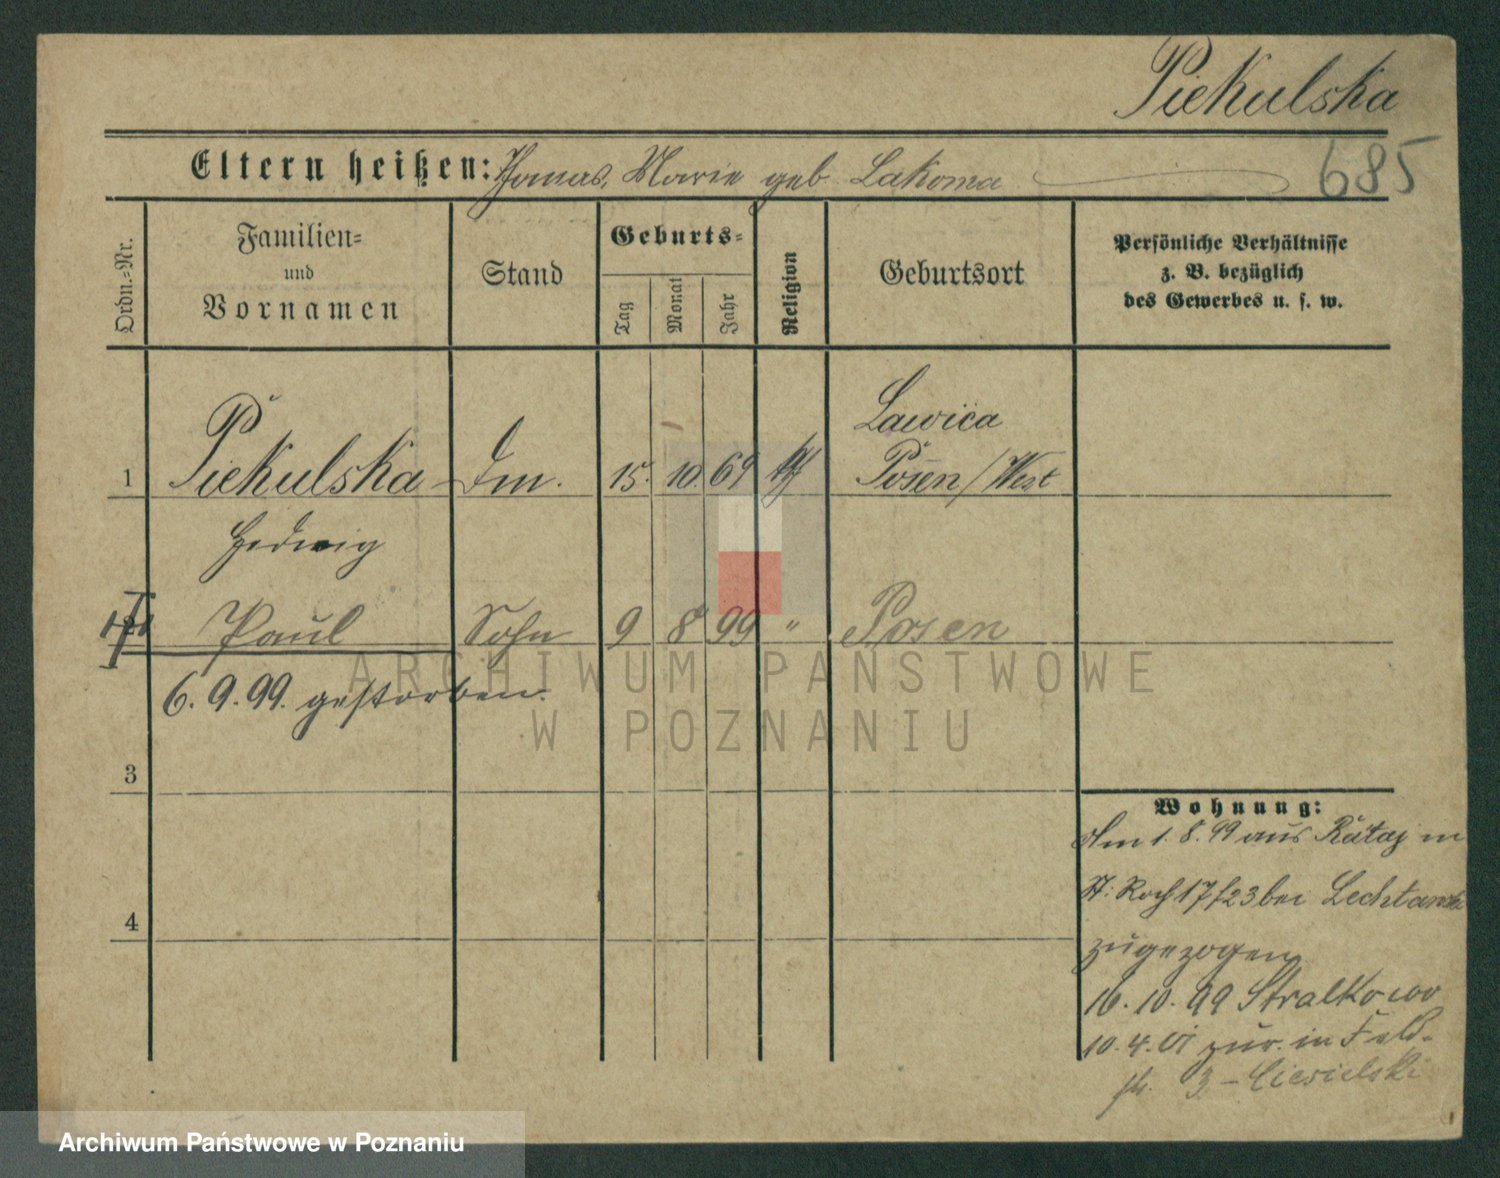 Piekulska
685
Eltern heißen: Thomas, Marie geb Lakoma
Ordn.=Nr.
Familien=
und
Vornamen
Stand
Geburts=
Tag
Monat
Jahr
Religion
Geburtsort
Persönliche Verhältnisse
z. B. bezüglich
des Gewerbes u. s. w.
Lawica
1 Piekulska 15. 10 69 Posen/West
Hedwig
Paul Sohn 9 8 99 " Posen
6. 9. 99. gestorben.
3
4
Wohnung:
Am 1. 8. 99 aus Rataj in
St: Roch 17/23 bei
zugezogen
16. 10. 99 Stralkowo
10. 4. 01 zur. in Feld-
str. 3 - Ciesielski
ARCHIWUM PAŃSTWOWE
W POZNANIU
Archiwum Państwowe w Poznaniu